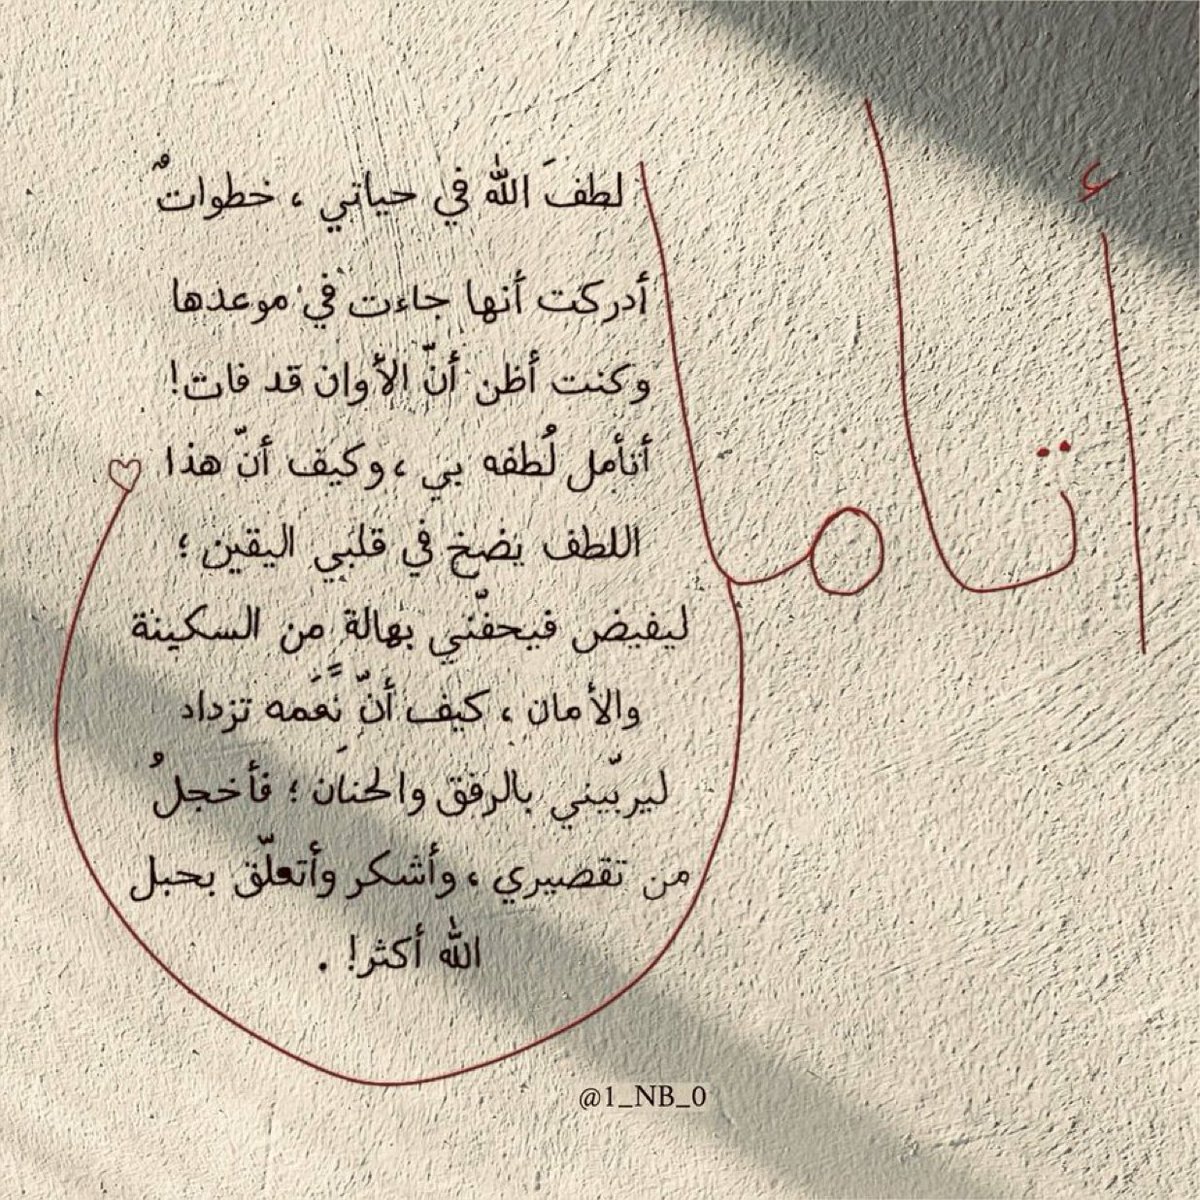 أتأمل
لطفَ الله في حياتي ، خطواتٌ
أدركت أنها جاءت في موعدها
وكنت أظن أنّ الأوان قد فات!
أتأمل لُطفه بي ، وكيف أنّ هذا
اللطف يضخ في قلبي اليقين ؛
ليفيض فيحفّني بهالة من السكينة
والأمان ، كيف أنّ نَعَمه تزداد
ليربّيني بالرفق والحنان ؛ فأخجلُ
من تقصيري ، وأشكر وأتعلّق بحبل
الله أكثر! .
@1_NB_0